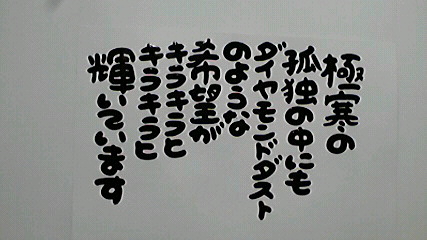 極寒の
孤独の中にも
ダイヤモンドダスト
のような
希望が
キラキラと
キラキラと
輝いています